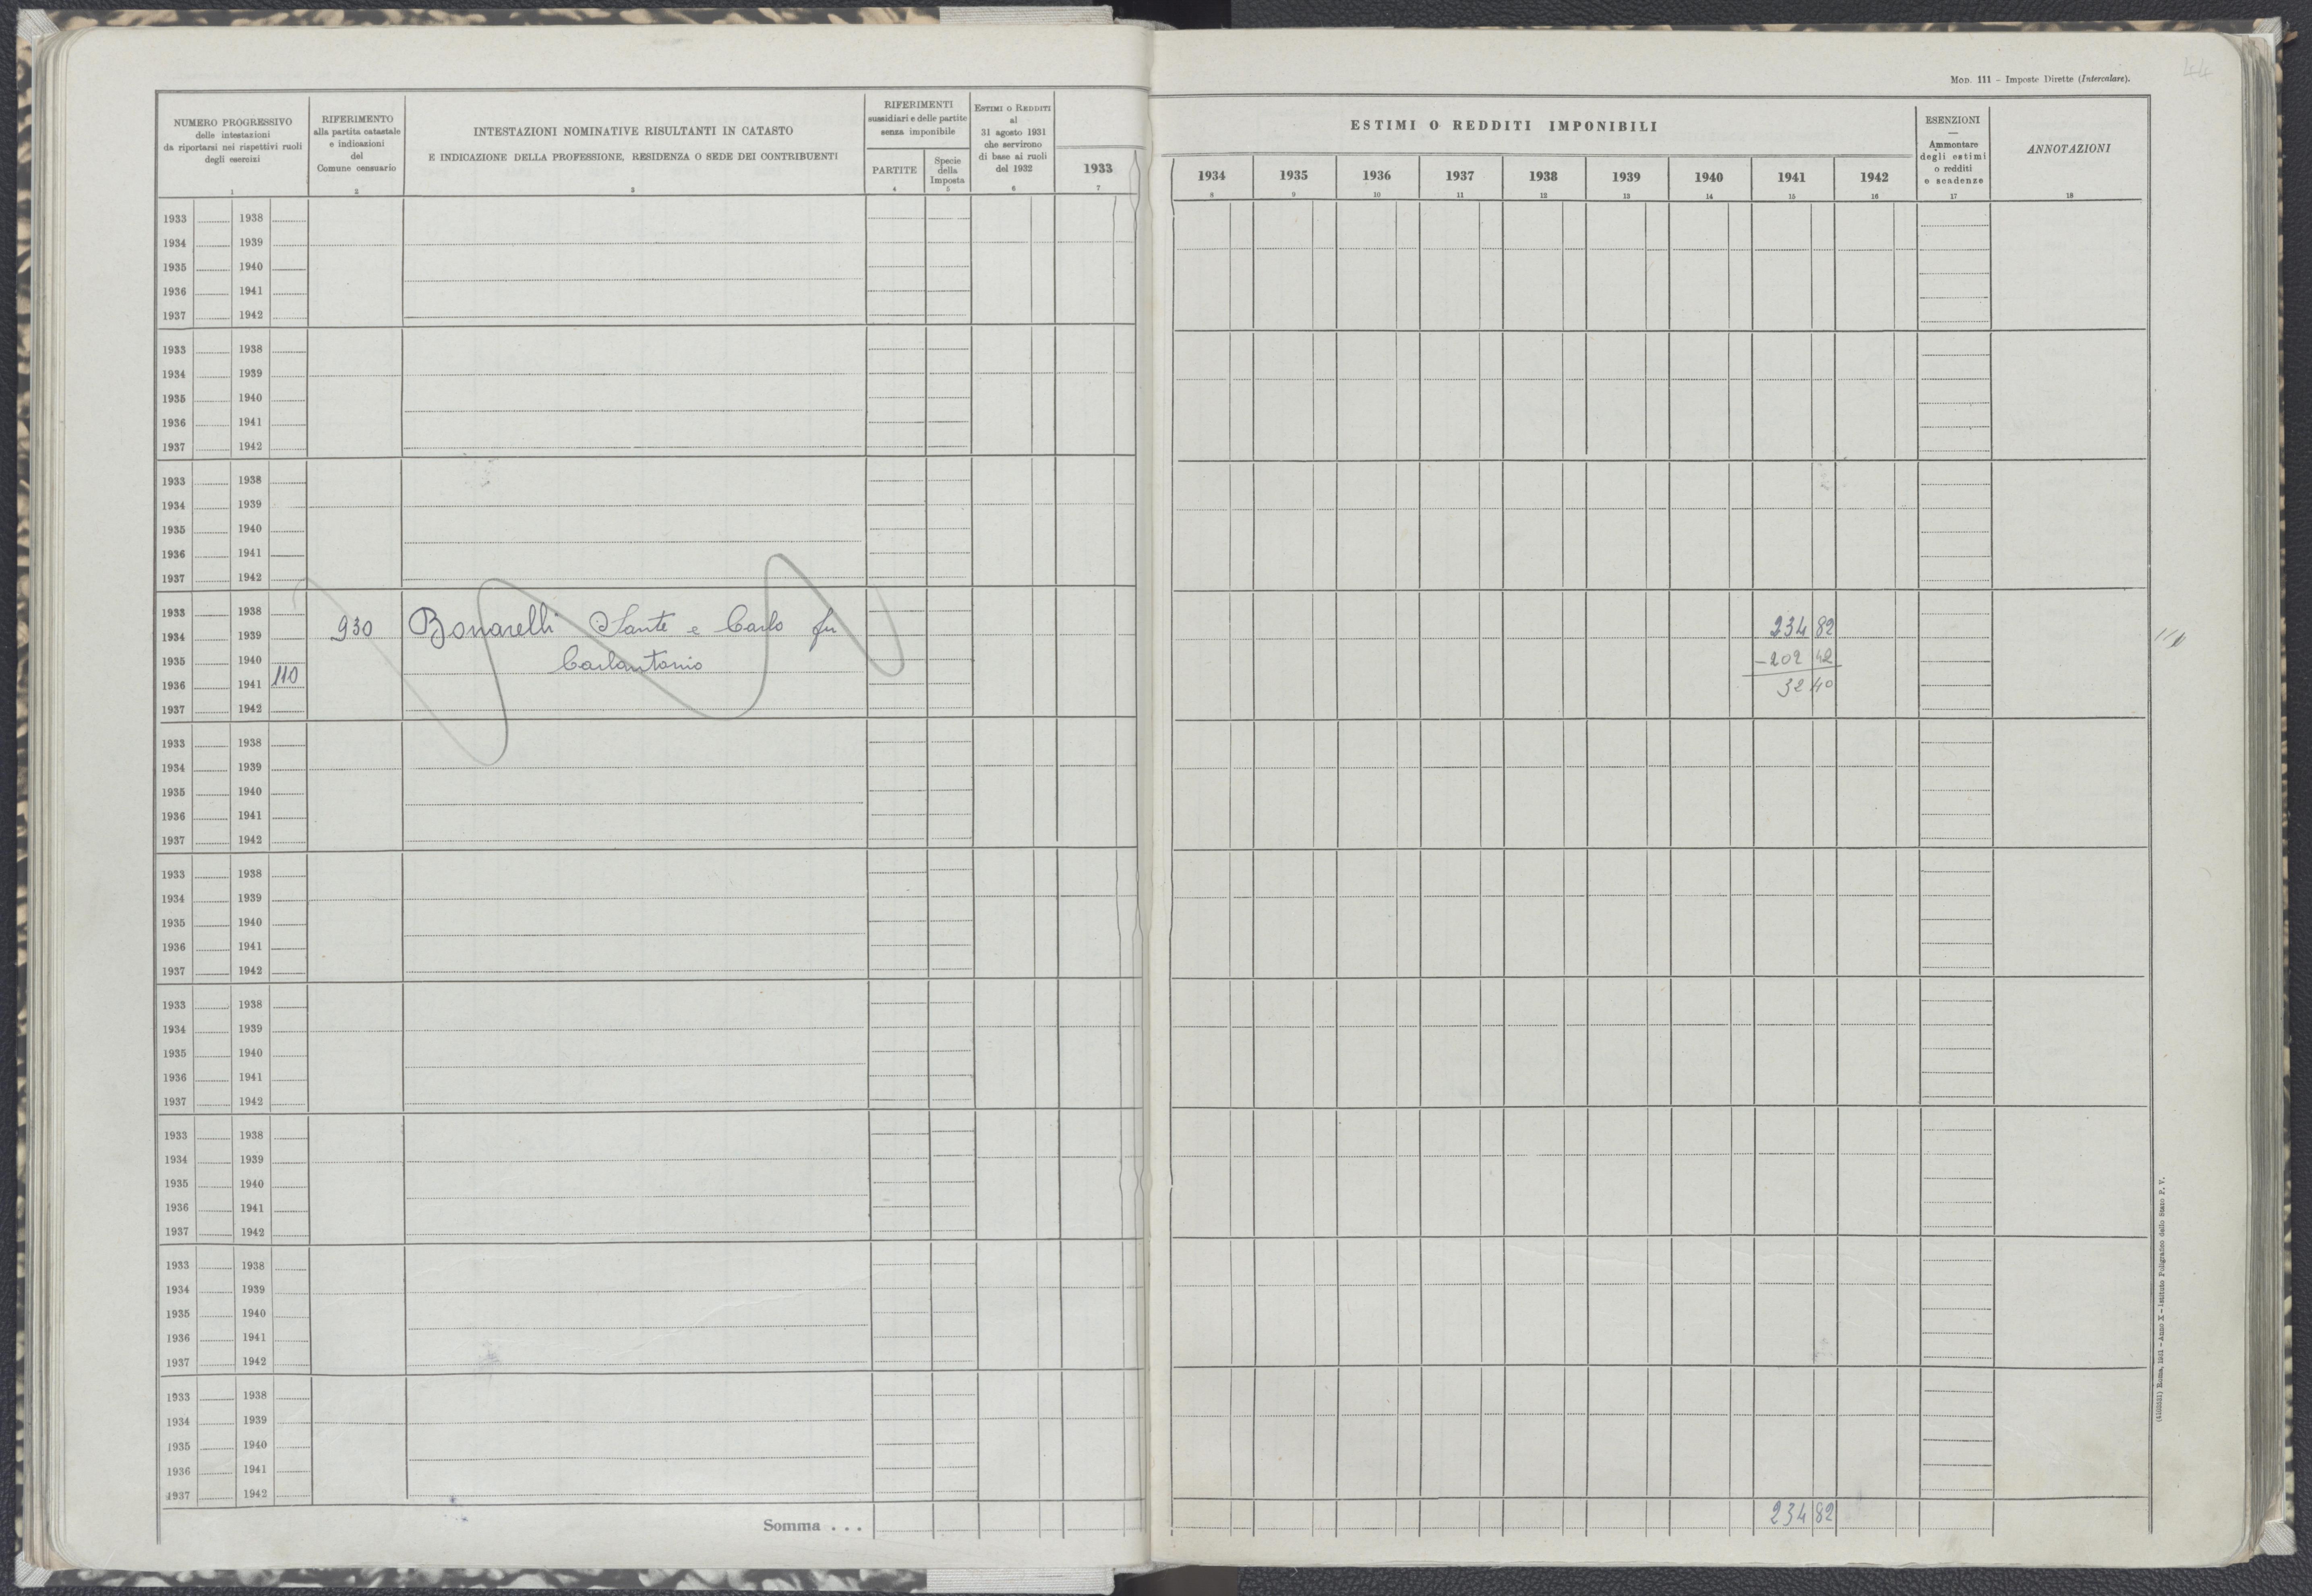 Mod. 111 - Imposte Dirette (Intercalare).
44
NUMERO PROGRESSIVO
delle intestazioni
da riportarsi nei rispettivi ruoli
degli esercizi
1
RIFERIMENTO
alla partita catastale
e indicazioni
del
Comune censuario
2
INTESTAZIONI NOMINATIVE RISULTANTI IN CATASTO
E INDICAZIONE DELLA PROFESSIONE, RESIDENZA O SEDE DEI CONTRIBUENTI
3
RIFERIMENTI
sussidiari e delle partite
senza imponibile
PARTITE
4
Specie
della
Imposta
5
Estimi o Redditi
al
31 agosto 1931
che servirono
di base ai ruoli
del 1932
6
1933
7
ESTIMI O REDDITI IMPONIBILI
1934 1935 1936 1937 1938 1939 1940 1941 1942
8 9 10 11 12 13 14 15 16
ESENZIONI
—
Ammontare
degli estimi
o redditi
e scadenze
17
ANNOTAZIONI
18
1933 1938
1934 1939
1935 1940
1936 1941
1937 1942
1933 1938
1934 1939
1935 1940
1936 1941
1937 1942
1933 1938
1934 1939
1935 1940
1936 1941
1937 1942
1933 1938
1934 1939 930 Bonarelli Sante e Carlo fu 234 82
1935 1940 Carlantonio -202 42
1936 1941 110 32 40
1937 1942
1933 1938
1934 1939
1935 1940
1936 1941
1937 1942
1933 1938
1934 1939
1935 1940
1936 1941
1937 1942
1933 1938
1934 1939
1935 1940
1936 1941
1937 1942
1933 1938
1934 1939
1935 1940
1936 1941
1937 1942
1933 1938
1934 1939
1935 1940
1936 1941
1937 1942
1933 1938
1934 1939
1935 1940
1936 1941
1937 1942
Somma . . . 234 82
Roma, 1931 - Anno X - Istituto Poligrafico dello Stato P. V.